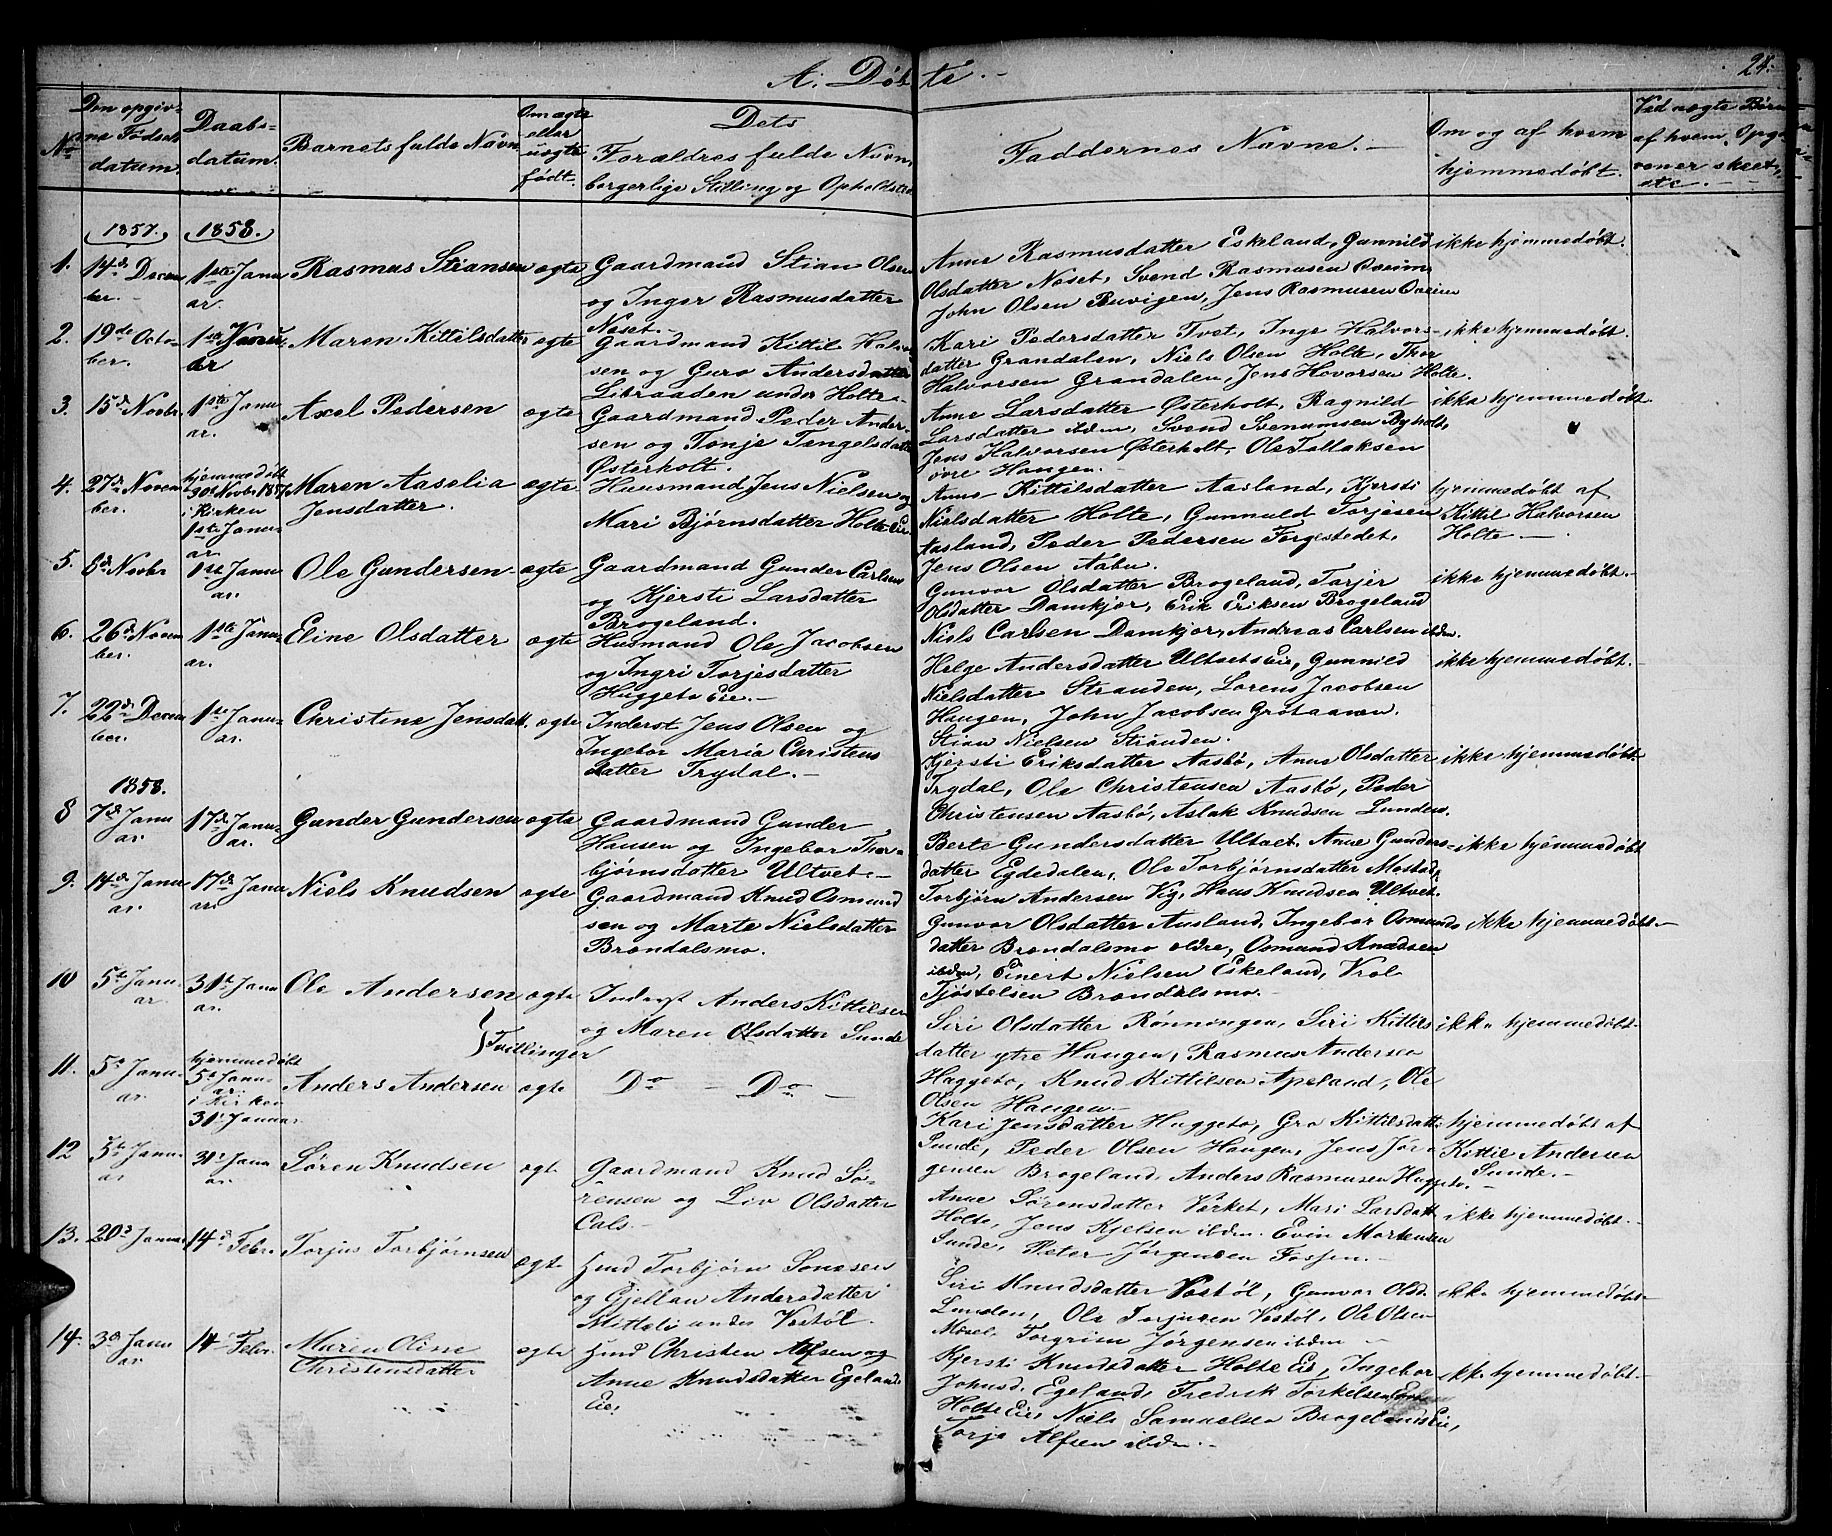 A. Døbte.
24.
No
Den opgivne Fødselsdatum.
Daabsdatum.
Barnets fulde Navn
Om ægte eller uægte født.
Dets
Forældres fulde Navn,
borgerlige Stilling og Opholdsted
Faddernes Navne.
Om og af hvem
hjemmedøbt.
Ved uægte Børn
af hvem Opgi-
vener skeet,
etc.
1857. 1858.
1. 14d Decem
ber.
1ste Janu
ar.
Rasmus Stiansen
ægte
Gaardmand Stian Olsen
og Inger Rasmusdatter
Næset.
Anne Rasmusdatter Eskeland, Gunnild
Olsdatter Næset, Svend Rasmusen
John Olsen Buvigen, Jens Rasmusen
ikke hjemmedøbt.
2. 19de Octo-
ber.
1ste Janu
ar
Maren Kittilsdatter
ægte
Gaardmand Kittil Halvor
sen og Guro Andersdatter
Libraaden under Holte
Kari Pedersdatter Tvet, Inge Halvors-
datter Grandalen, Niels Olsen Holte, Thor
Halvorsen Grandalen, Jens Hovorsen Holte.
ikke hjemmedøbt.
3. 15d Novbr
1ste Janu
ar.
Axel Pedersen
ægte
Gaardmand Peder Ander-
sen og Tonje Tengelsdatter
Østerholt.
Anne Larsdatter Østerholt, Ragnild
Larsdatter ibdm, Svend Svenumsen Byholt,
Jens Halvorsen Østerholt, Ole Tallaksen
øvre Haugen.
ikke hjemmedøbt.
4. 27d Novem
ber.
hjemmedøbt
30t Novbr 1857
i Kirken
1ste Janu-
ar
Maren Aaselia
Jensdatter.
ægte
Huusmand Jens Nielsen og
Mari Bjørnsdatter Holte Eie
Anne Kittilsdatter Aasland, Kjersti
Nielsdatter Holte, Gunnuld Torjesen
Aasland, Peder Pedersen Forgestedet,
Jens Olsen Aabu.
hjemmedøbt af
Kittil Halvorsen
Holte
5. 8d Novbr
1ste Janu
ar.
Ole Gundersen
ægte
Gaardmand Gunder Carlsen
og Kjersti Larsdatter
Brøgeland.
Gunvor Olsdatter Brøgeland, Torjer
Olsdatter Damkjær, Erik Eriksen Brøgeland
Niels Carlsen Damkjær, Andreas Carlsen ibdm.
ikke hjemmedøbt.
6. 26d Novem
ber.
1ste Janu
ar.
Eline Olsdatter
ægte
Husmand Ole Jacobsen
og Ingri Torjesdatter
Huggeto Eie.
Helge Andersdatter Ultvets Eie, Gunnild
Nielsdatter Stranden, Lorens Jacobsen
Haugen, John Jacobsen Grotaaren.
Stian Nielsen Stranden.
ikke hjemmedøbt.
7. 22d Decem
ber.
1ste Janu-
ar.
Christine Jensdat.
ægte
Inderst Jens Olsen og
Ingebor Maria Christens
datter Trydal.
Kjersti Eriksdatter Aasbø, Anne Olsdatter
Trydal, Ole Christensen Aasbø, Peder
Christensen Aasbø, Aslak Knudsen Lunden.
ikke hjemmedøbt.
1858.
8 7d Janu
ar.
17d Janu-
ar.
Gunder Gundersen
ægte
Gaardmand Gunder
Hansen og Ingebor Thor-
bjørnsdatter Ultvet.
Berte Gundersdatter Ultvet, Anne Gunders-
datter Egdedalen, Ole Torbjørnsdatter
Torbjørn Andersen Vig, Hans Knudsen Ultvet.
ikke hjemmedøbt
9. 14d Janu
ar.
17d Janu
ar.
Niels Knudsen
ægte
Gaardmand Knud Osmund
sen og Marte Nielsdatter
Brøndalsmo.
Gunvor Olsdatter Ausland, Ingebor Osmunds
datter Brøndalsmo ældre, Osmund Knudsen
ibdm, Einert Nielsen Eskeland, Vrol
Tjøstelsen Brøndalsmo.
ikke hjemmedøbt.
10 5t Janu-
ar.
31t Janu
ar.
Ole Andersen
ægte
Inderst Anders Kittilsen
og Maren Olsdatter Sunde
Siri Olsdatter Rønningen, Siri Kittils
datter ytre Haugen, Rasmus Andersen
Haggeto, Knud Kittilsen Apeland, Ole
Olsen Haugen.
ikke hjemmedøbt.
} Tvillinger
11. 5t Janu-
ar.
hjemmedøbt
5t Janu-
ar.
i Kirken
31t Januar.
Anders Andersen
ægte
Do — Do —
Kari Jensdatter Huggeto, Gro Kittilsdatt.
Sunde, Peder Olsen Haugen, Jens Jør-
gensen Brøgeland, Anders Rasmusen Huggeto.
hjemmedøbt af
Kittil Andersen
Sunde.
12 5t Janu-
ar
31t Janu
ar.
Søren Knudsen
ægte
Gaardmand Knud Sø-
rensen og Liv Olsdatter
Cals.
Anne Sørensdatter Værket, Mari Larsdatt.
Holte, Jens Kjelsen ibdm. Even Mortensen
Sunde, Peter Jørgensen Fossen.
ikke hjemmedøbt.
13. 20d Januar
14d Febr.
Torjus Torbjørnsen
ægte
Hmd Torbjørn Sonesen
og Gjellau Andersdatter
Mittelie under Vestøl.
Siri Knudsdatter Vestøl, Gunvor Olsd.
Lunden, Ole Torjusen Vestøl, Ole Olsen
Mæsel, Torgrim Jørgensen ibdm
ikke hjemmedøbt.
14. 3d Janu
ar.
14d Febr.
Maren Oline
Christensdatter
ægte
Hmd Christen Alfsen og
Anne Knudsdatter Egelands
Eie.
Kjersti Knudsdatter Holte Eie, Ingebor
Johnsd. Egeland, Fredrik Torkelsen
Holte Eie, Niels Samuelsen Brøgelands Eie,
Torje Alfsen ibdm.
ikke hjemmedøbt.